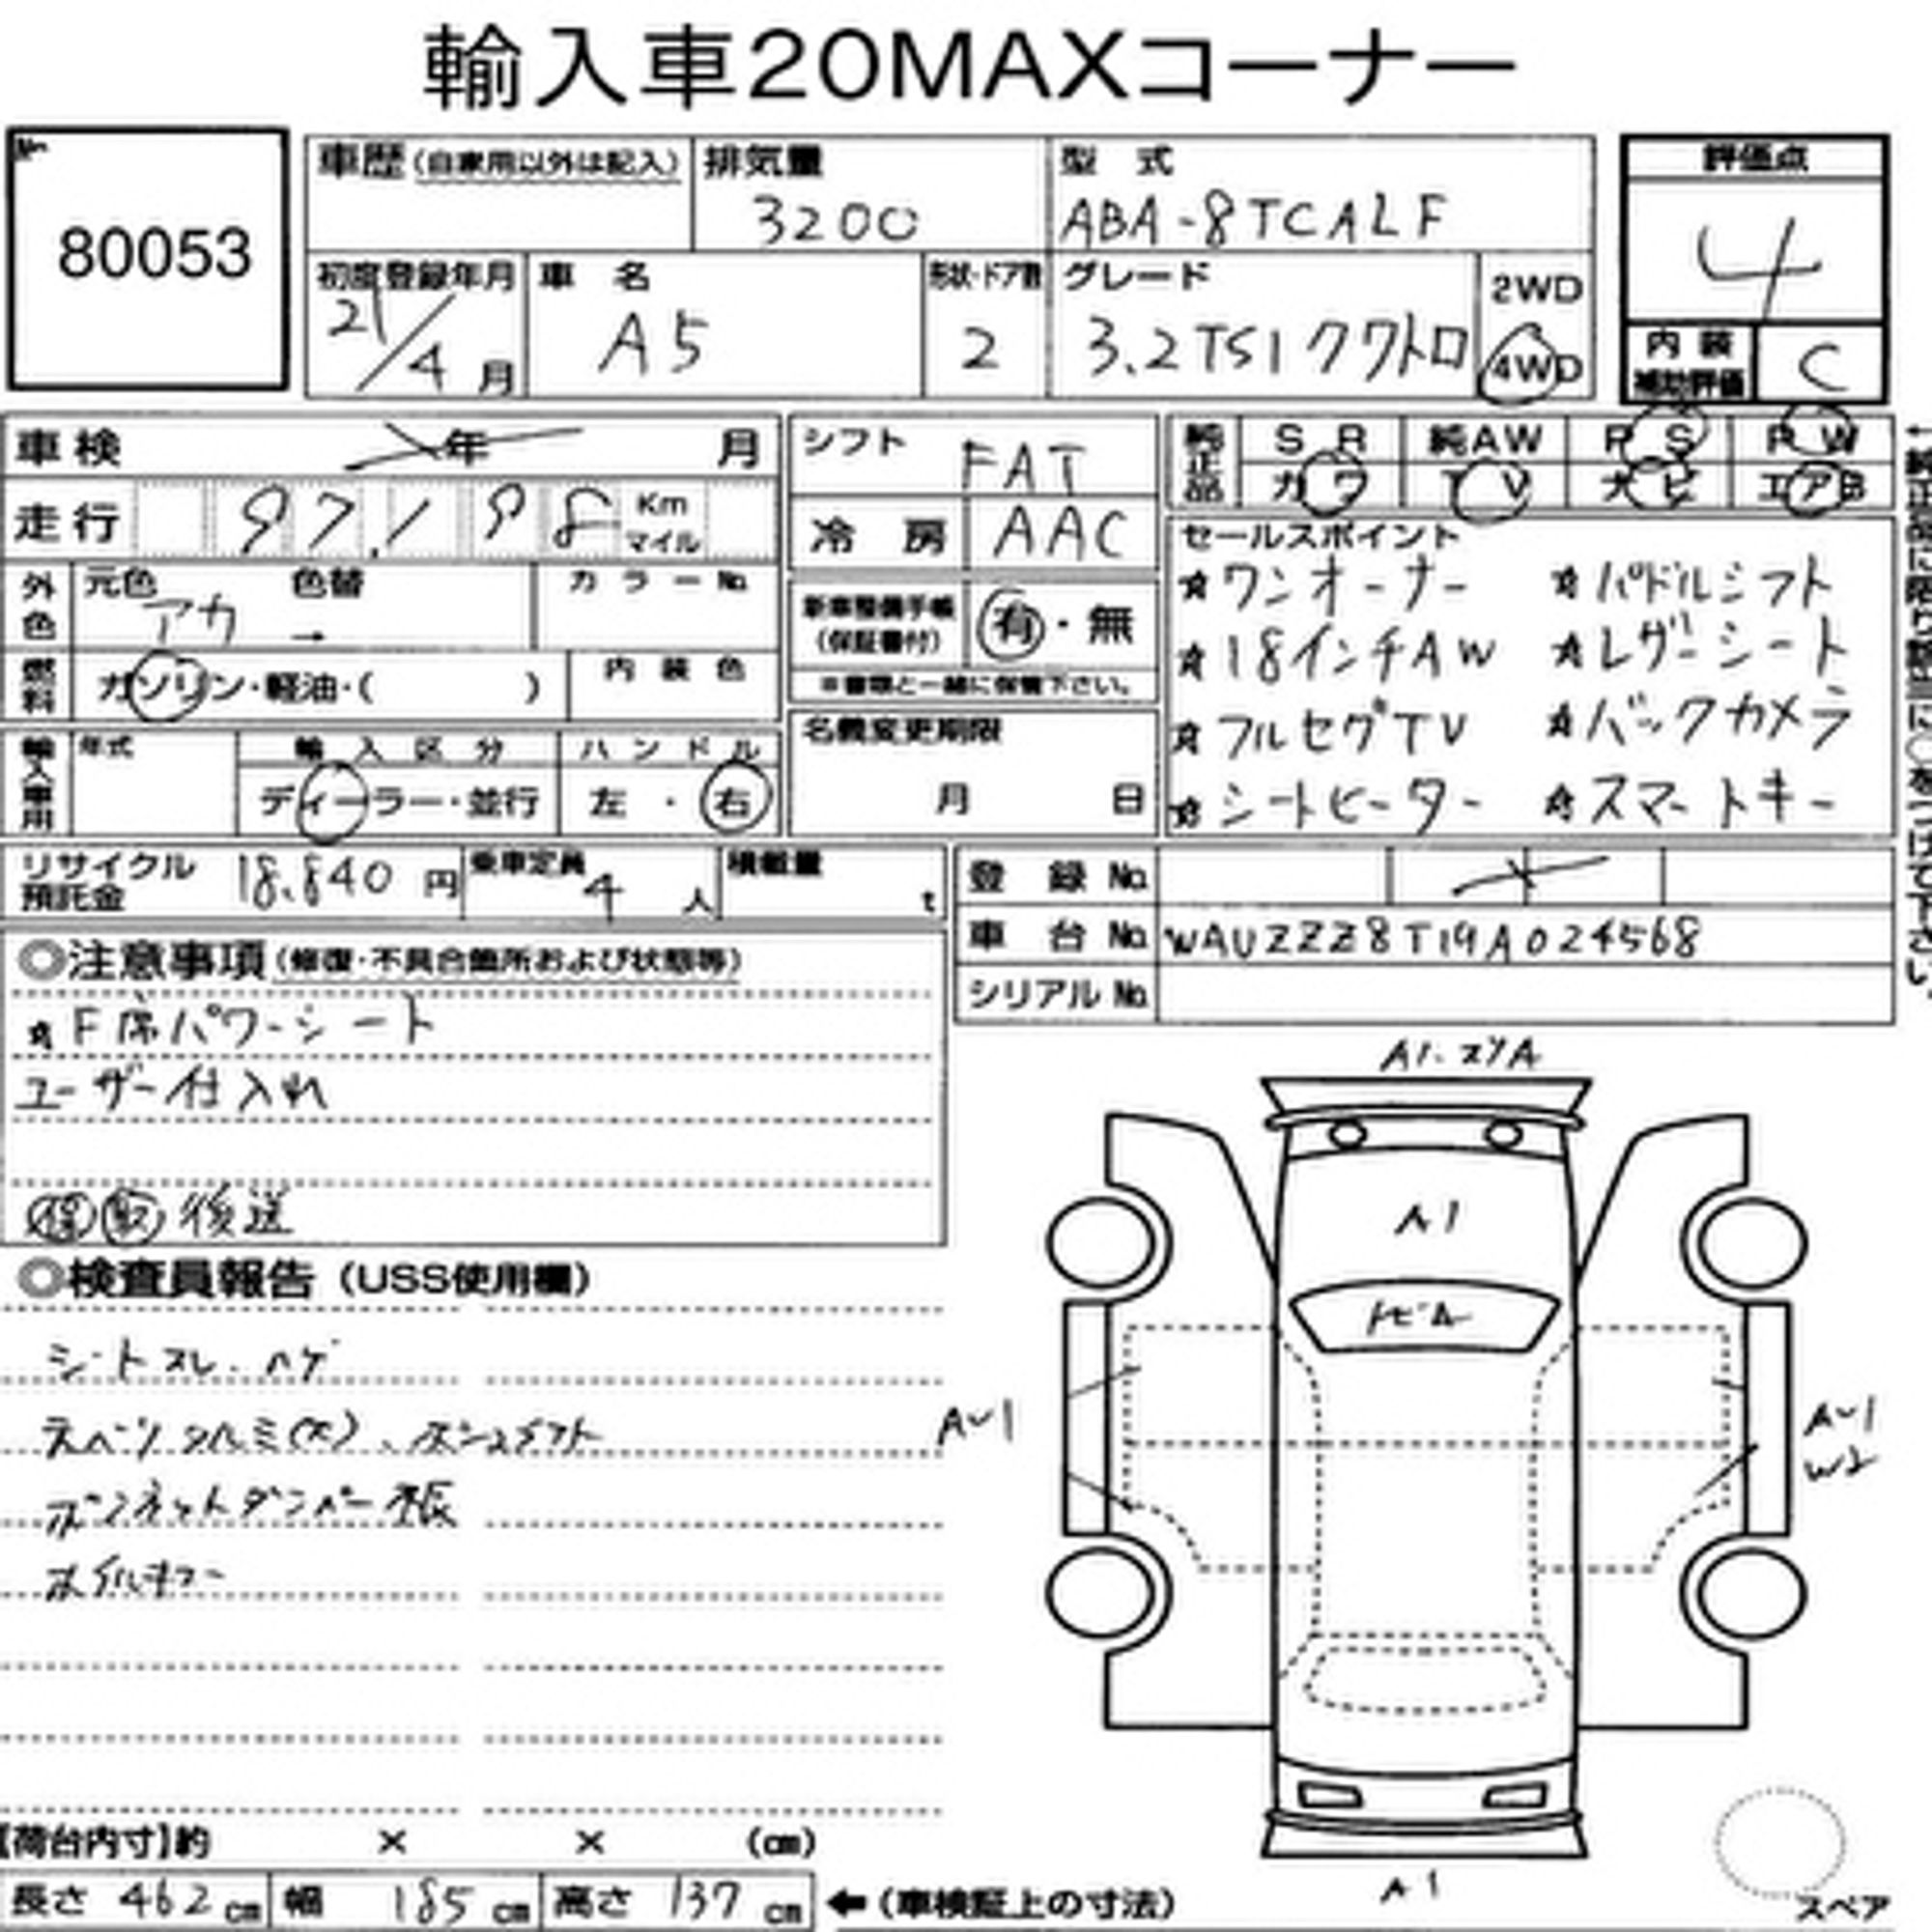 輸入車20MAXコーナー
№
80053
車歴(自家用以外は記入)
排気量
3200
型 式
ABA-8TCALF
評価点
4
初度登録年月
21/4月
車 名
A5
形状・ドア数
2
グレード
3.2TSIクワトロ
2WD
4WD
内装
補助評価
C
車検 年 月
走行
Km
マイル
外色
元色 色替
アカ →
カラーNo.
燃料
ガソリン・軽油・( )
内装色
輸入車用
年式
輸入区分
ディーラー・並行
ハンドル
左・右
シフト
FAT
冷 房
AAC
新車整備手帳
(保証書付)
有・無
※書類と一緒に保管下さい。
名義変更期限
月 日
純正品
SR 純AW PS PW
カワ TV ナビ エアB
セールスポイント
☆ワンオーナー ☆パドルシフト
☆18インチAW ☆レザーシート
☆フルセグTV ☆バックカメラ
☆シートヒーター ☆スマートキー
リサイクル
預託金
18,840円
乗車定員
4人
積載量
t
登 録 No.
車 台 No.
WAUZZZ8T19A024568
シリアル No.
◎注意事項(修復・不具合箇所および状態等)
☆F席パワーシート
ユーザー仕入れ
保 取 後送
◎検査員報告(USS使用欄)
シートスレ.ハゲ
A1.
A1
AU1
AU1
W2
A1
スペア
【荷台内寸】約 × × (cm)
長さ 462cm 幅 185cm 高さ 137cm ←(車検証上の寸法)